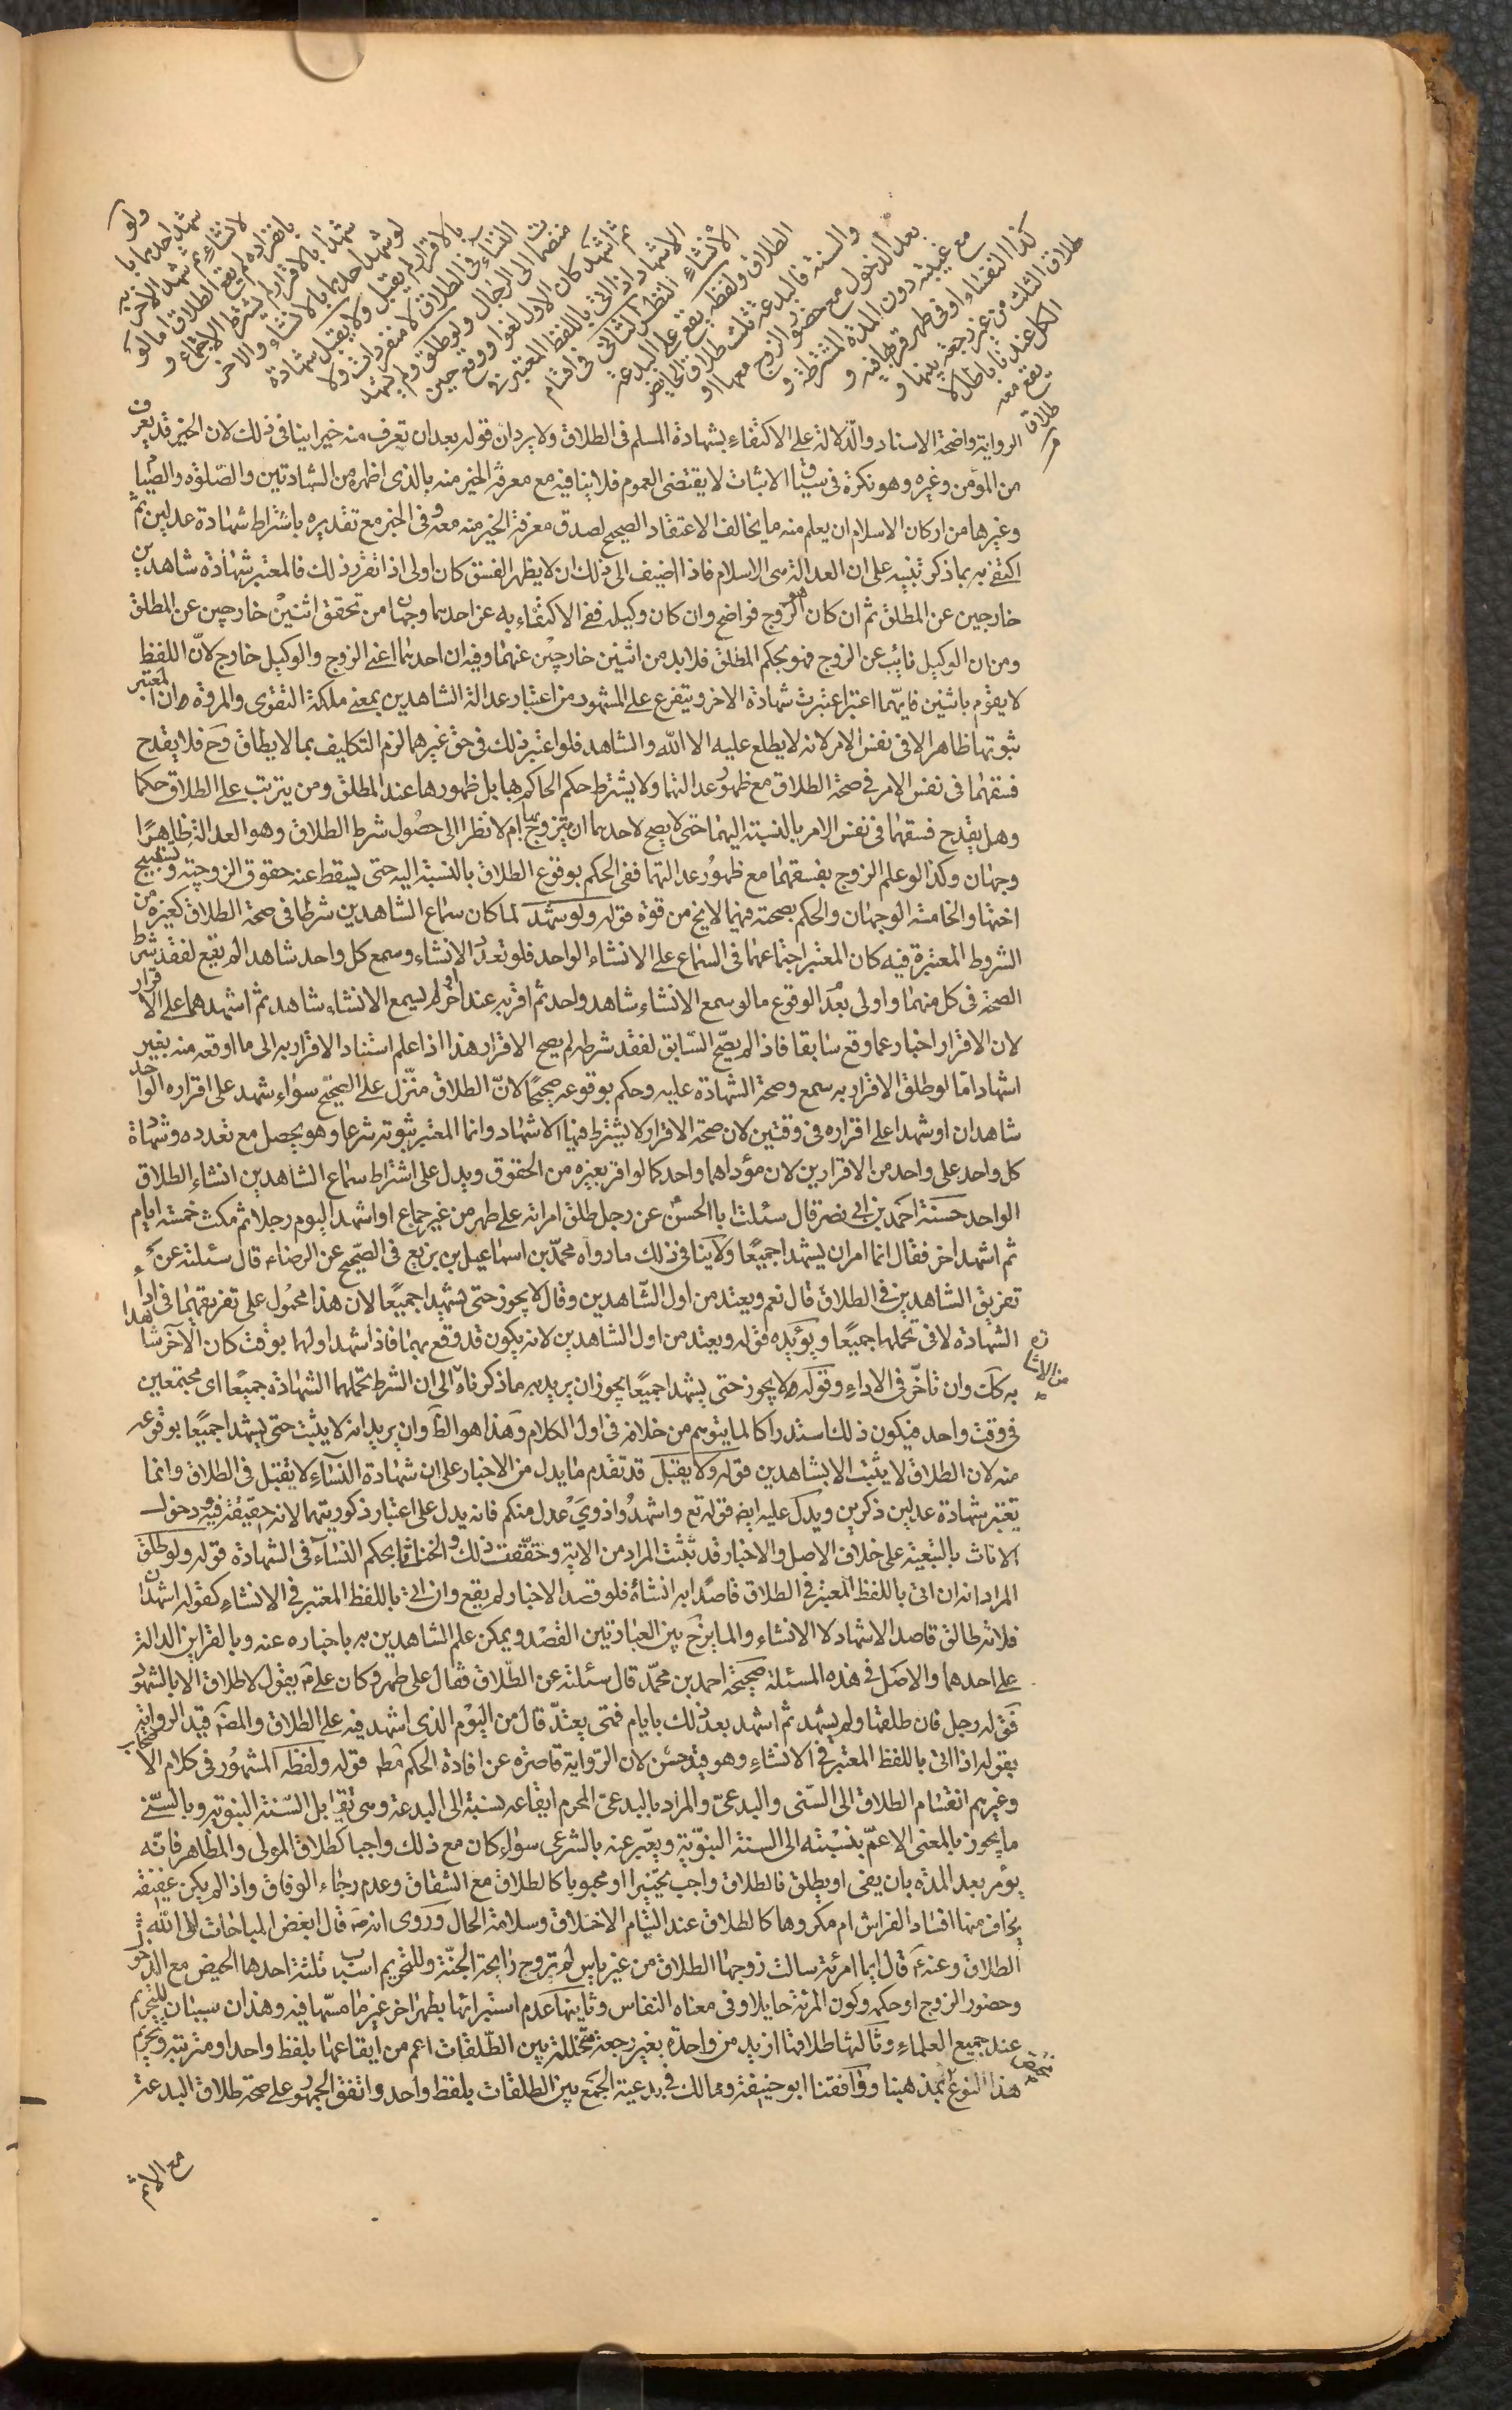 ولو
شهد احدهما با
لانشاء ثم شهد الآخر به
بانفراده لم يقع الطلاق اما لو
شهدا بالاقرار لم يشترط الاجتماع و
لو شهد احدهما بالانشاء والاخر
بالاقرار لم يقبل ولا يقبل شهادة
النساء في الطلاق لا منفردات ولا
منضمات الى الرجال ولو طلق ولم يشهد
ثم اشهد كان الاول لغوا ووقع حين
الاشهاد اذا اتى باللفظ المعتبر في
الانشاء النظر الثاني في اقسام
الطلاق ولفظه يقع على البدعة
والسنة فالبدعة ثلث طلاق الحايض
بعد الدخول مع حضور الزوج معها او
مع غيبته دون المدة المشترطة و
كذا النفساء او في طهر قربها فيه و
طلاق الثلث من غير رجعة بينها و
الكل عندنا باطل لا
يقع معه
طلاق
الرواية واضحة الاسناد والدلالة على الاكتفاء بشهادة المسلم في الطلاق ولا يرد ان قوله بعد ان تعرف منه خيرا ينافي ذلك لان الخير قد يعرف
من المؤمن وغيره وهو نكرة في سياق الاثبات لا يقتضي العموم فلا ينافيه مع معرفة الخير منه بالذي اظهره من الشهادتين والصلوة والصيام
وغيرها من اركان الاسلام ان يعلم منه ما يخالف الاعتقاد الصحيح لصدق معرفة الخير منه معه وفي الخبر مع تقديره باشتراط شهادة عدلين ثم
اكتفى به بما ذكر تنبيه على ان العدالة هي الاسلام فاذا اضيف الى ذلك ان لا يظهر الفسق كان اولى اذا تقرر ذلك فالمعتبر شهادة شاهدين
خارجين عن المطلق ثم ان كان هو الزوج فواضح وان كان وكيله ففي الاكتفاء به عن احدهما وجهان من تحقق اثنين خارجين عن المطلق
ومن ان الوكيل نايب عن الزوج فهو بحكم المطلق فلا بد من اثنين خارجين عنهما وفيه ان احدهما اعني الزوج والوكيل خارج لان اللفظ
لا يقوم باثنين فايهما اعتبر اعتبرت شهادة الاخر ويتفرع على المشهور من اعتبار عدالة الشاهدين بمعنى ملكة التقوى والمروة ان المعتبر
ثبوتها ظاهرا لا في نفس الامر لانه لا يطلع عليه الا الله والشاهد فلو اعتبر ذلك في حق غيرهما لزم التكليف بما لا يطاق وح فلا يقدح
فسقهما في نفس الامر في صحة الطلاق مع ظهور عدالتهما ولا يشترط حكم الحاكم بها بل ظهورها عند المطلق ومن يترتب على الطلاق حكما
وهل يقدح فسقهما في نفس الامر بالنسبة اليهما حتى لا يصح لاحدهما ان يتزوج بها ام لا نظرا الى حصول شرط الطلاق وهو العدالة ظاهرا
وجهان وكذا لو علم الزوج بفسقهما مع ظهور عدالتهما ففي الحكم بوقوع الطلاق بالنسبة اليه حتى يسقط عنه حقوق الزوجية ويستبيح
اختها والخامسة الوجهان والحكم بصحته فيهما لا يخ من قوة قوله ولو شهد لما كان سماع الشاهدين شرطا في صحة الطلاق كغيره من
الشروط المعتبرة فيه كان المعتبر اجتماعهما في السماع على الانشاء الواحد فلو تعدد الانشاء وسمع كل واحد شاهد لم يقع لفقد شرط
الصحة في كل منهما واولى بعد الوقوع ما لو سمع الانشاء شاهد واحد ثم اقر به عند اخر او لم يسمع الانشاء شاهد ثم اشهدهما على الاقرار
لان الاقرار اخبار عما وقع سابقا فاذا لم يصح السابق لفقد شرطه لم يصح الاقرار هذا اذا علم استناد الاقرار به الى ما اوقعه منه بغير
اشهاد اما لو طلق الاقرار به سمع وصحة الشهادة عليه وحكم بوقوعه صحيحا لان الطلاق منزل على الصحيح سواء شهد على اقراره الواحد
شاهدان او شهدا على اقراره في وقتين لان صحة الاقرار لا يشترط فيها الاشهاد وانما المعتبر ثبوته شرعا وهو يحصل مع تعدده وشهادة
كل واحد على واحد من الاقرارين لان مؤداهما واحد كما لو اقر بغيره من الحقوق ويدل على اشتراط سماع الشاهدين انشاء الطلاق
الواحد حسنة احمد بن ابي نصر قال سئلت ابا الحسن عن رجل طلق امراته على طهر من غير جماع او اشهد اليوم رجلا ثم مكث خمسة ايام
ثم اشهد اخر فقال انما امر ان يشهدا جميعا ولا ينافي ذلك ما رواه محمد بن اسماعيل بن بزيع في الصحيح عن الرضا قال سئلته عن
تفريق الشاهدين في الطلاق قال نعم ويعتد من اول الشاهدين وقال لا يجوز حتى يشهدا جميعا لان هذا محمول على تفريقهما في اداء
الشهادة لا في تحملها جميعا ويؤيده قوله ويعتد من اول الشاهدين لانه يكون قد وقع بهما فاذا شهد اولهما بوقت كان الآخر شاهدا
به كك وان تأخر في الاداء وقوله ولا يجوز حتى يشهدا جميعا يجوز ان يريد به ما ذكرناه الى ان الشرط تحملهما الشهادة جميعا اي مجتمعين
في وقت واحد فيكون ذلك استدراكا لما يتوهم من خلافه في اول الكلام وهذا هو الظ وان يريد انه لا يثبت حتى يشهدا جميعا بوقوعه
منه لان الطلاق لا يثبت الا بشاهدين قوله ولا يقبل قد تقدم ما يدل من الاخبار على ان شهادة النساء لا تقبل في الطلاق وانما
تعتبر شهادة عدلين ذكرين ويدل عليه ايض قوله تع واشهدوا ذوي عدل منكم فانه يدل على اعتبار ذكوريتهما لانه حقيقة فيه ودخول
الاناث بالتبعية على خلاف الاصل والاخبار قد بينت المراد من الاية وحققت ذلك والخناثى بحكم النساء في الشهادة قوله ولو طلق
المراد انه ان اتى باللفظ المعتبر في الطلاق قاصدا به انشاءه فلو قصد الاخبار لم يقع وان اتى باللفظ المعتبر في الانشاء كقوله اشهد ان
فلانة طالق قاصدا الاشهاد لا الانشاء والمايز ح بين العبارتين القصد ويمكن علم الشاهدين به باخباره عنه وبالقراين الدالة
على احدهما والاصل في هذه المسئلة صحيحة احمد بن محمد قال سئلته عن الطلاق فقال على طهر وكان علي ع يقول لا طلاق الا بالشهود
فق له رجل فان طلقها ولم يشهد ثم اشهد بعد ذلك بايام فمتى يعتد قال من اليوم الذي اشهد فيه على الطلاق والمصنف قيد الرواية
بقوله اذا اتى باللفظ المعتبر في الانشاء وهو قيد حسن لان الرواية قاصرة عن افادة الحكم مط قوله ولفظه المشهور في كلام الاصحاب
وغيرهم انقسام الطلاق الى السني والبدعي والمراد بالبدعي المحرم ايقاعه نسبة الى البدعة وهي تقابل السنة النبوية وبالسني
ما يجوز بالمعنى الاعم بنسبته الى السنة النبوية ويعبر عنه بالشرعي سواء كان مع ذلك واجبا كطلاق المولي والمظاهر فانه
يؤمر بعد المدة بان يفئ او يطلق فالطلاق واجب تخييرا او محبوبا كالطلاق مع الشقاق وعدم رجاء الوفاق واذا لم يكن عفيفة
يخاف منها افساد الفراش ام مكروها كالطلاق عند التيام الاخلاق وسلامة الحال وروي انه ص قال ابغض المباحات الى الله
الطلاق وعنه ص قال ايما امرئة سالت زوجها الطلاق من غير باس لم تروح رايحة الجنة وللتحريم اسباب ثلثة احدها الحيض مع الدخول
وحضور الزوج او حكمه وكون المرئة حايلا وفي معناه النفاس وثانيها عدم استبرائها بطهر اخر غير ما مسها فيه وهذان سببان للتحريم
عند جميع العلماء وثالثها طلاقها ازيد من واحدة بغير رجعة متخللة بين الطلقات اعم من ايقاعها بلفظ واحد او مترتبة وتحريم
هذا النوع بمذهبنا ووافقنا ابو حنيفة ومالك في بدعية الجمع بين الطلقات بلفظ واحد واتفق الجمهور على صحة طلاق البدعة
مع الاثم